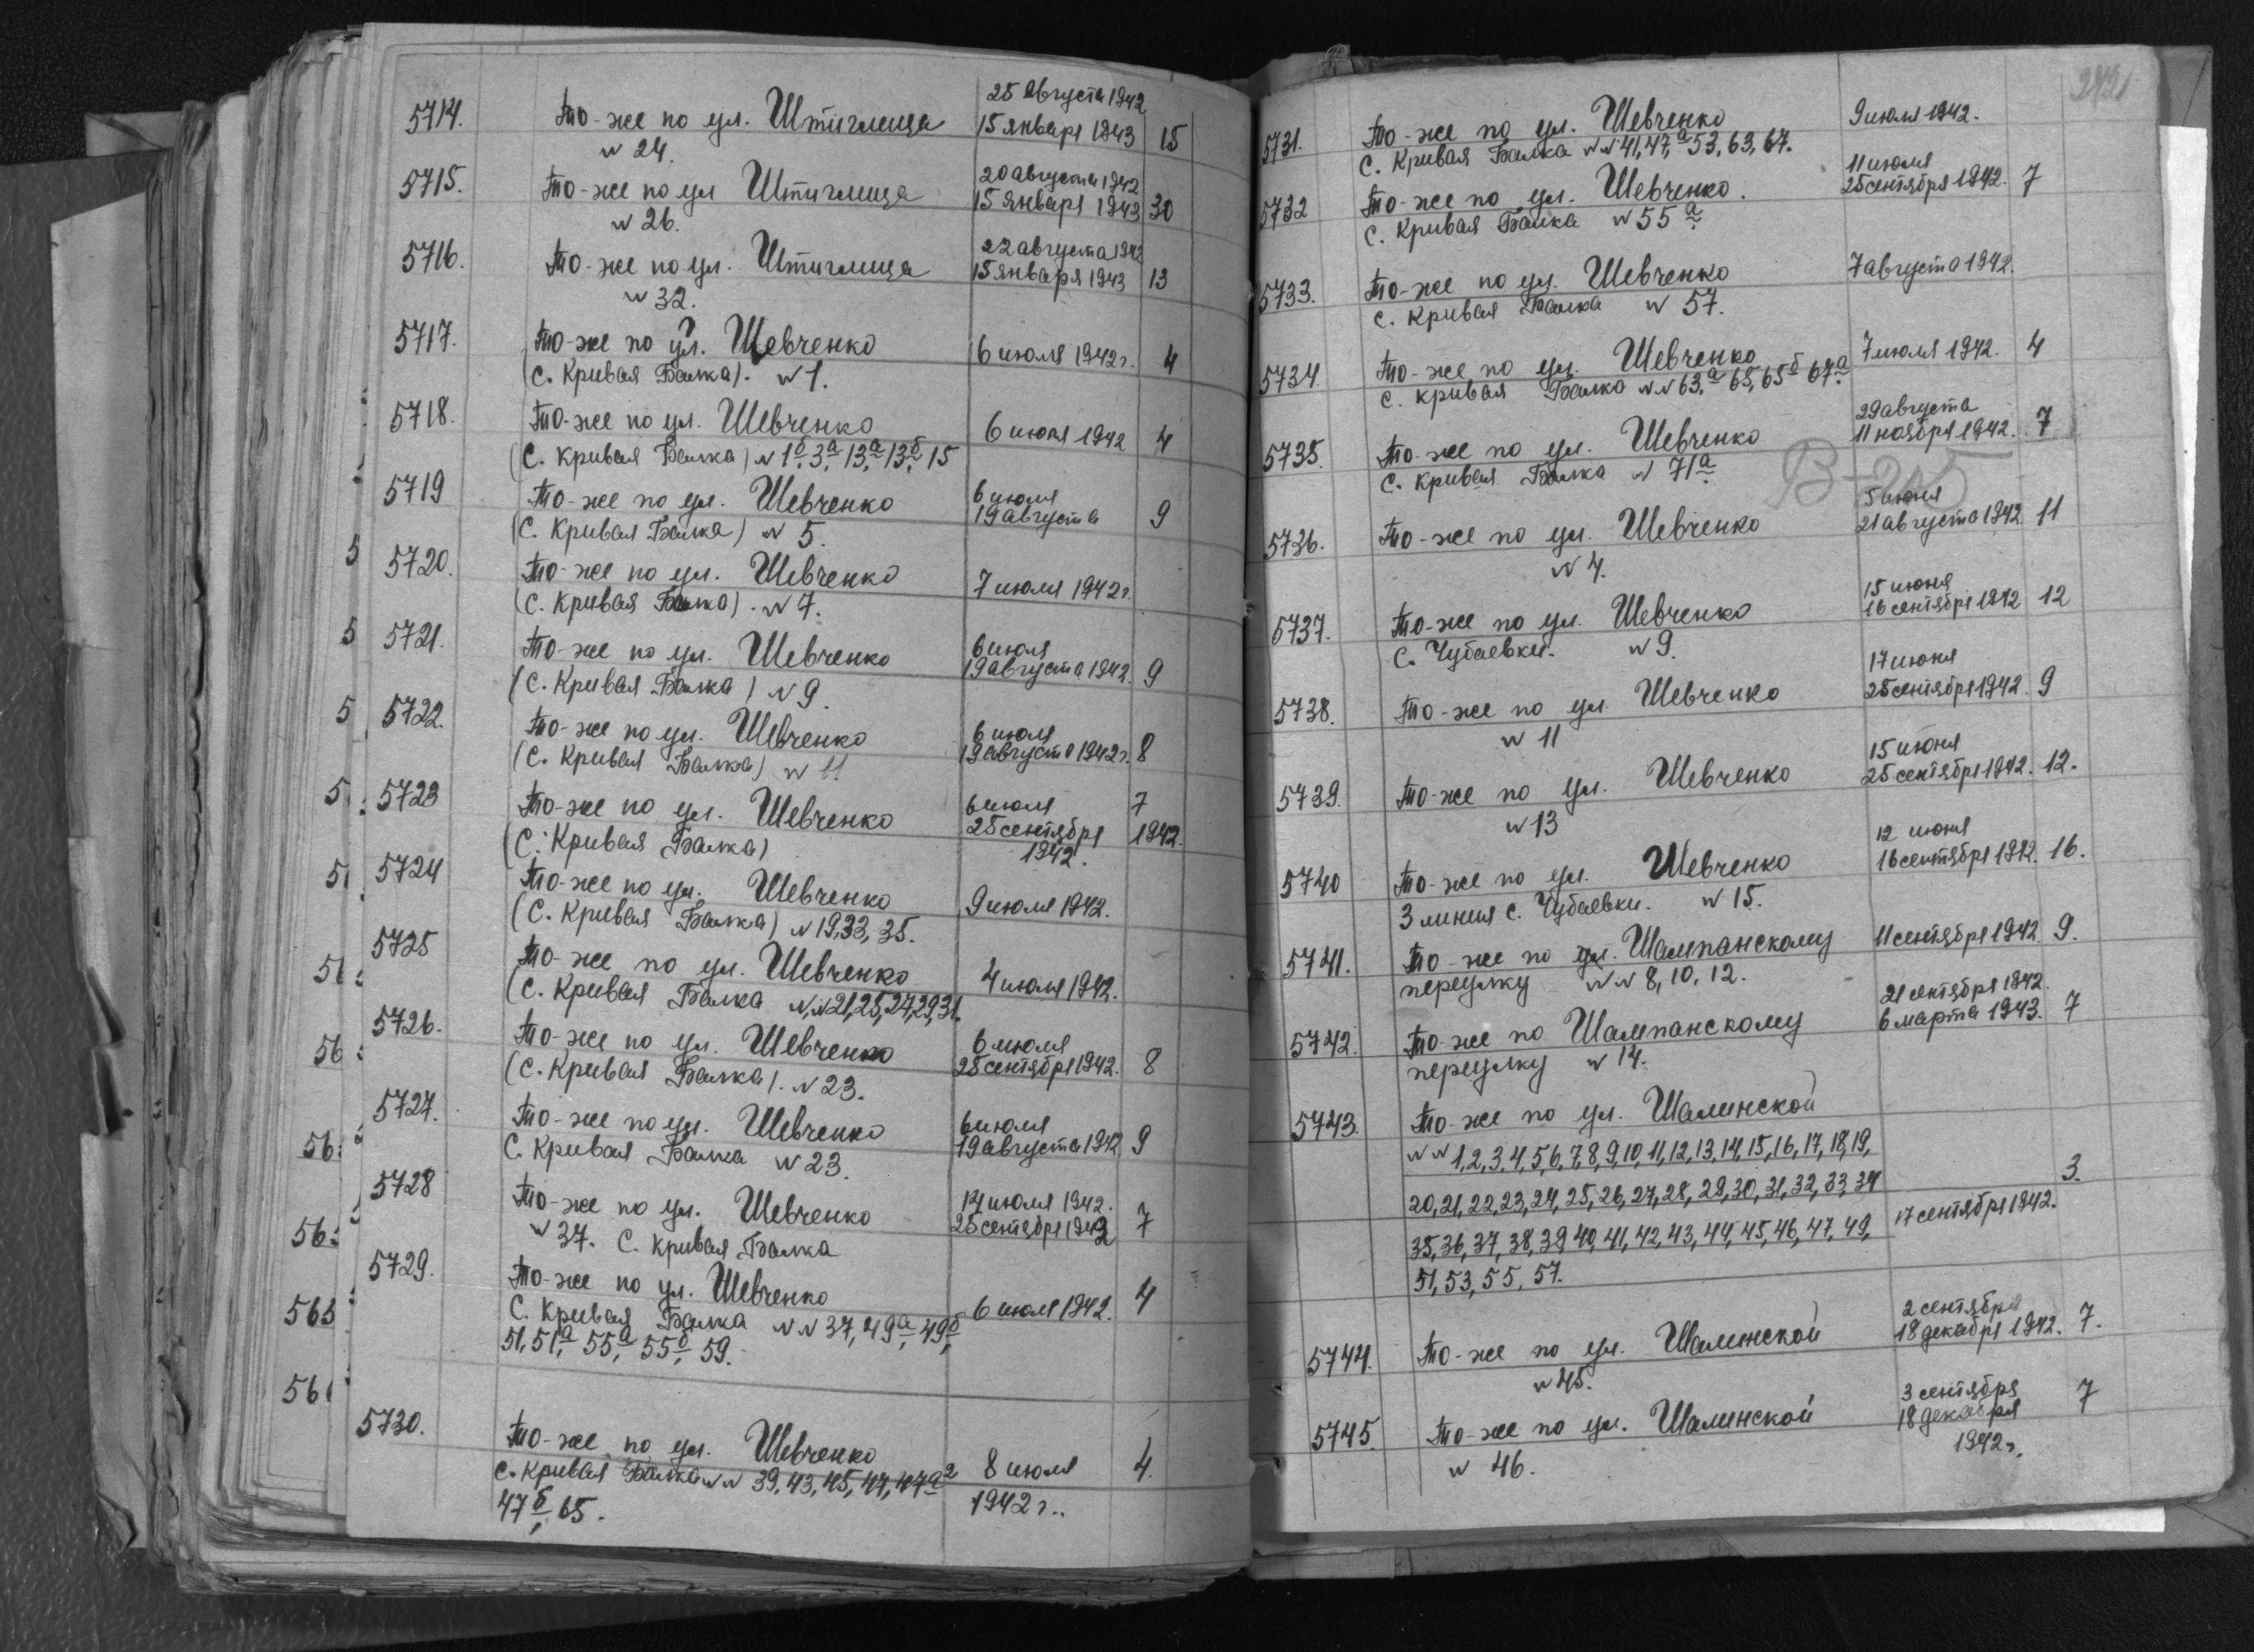 25 августа 1942
5714. То-же по ул. Штиглица 15 января 1943 15
№ 24.
20 августа 1942
5715. То-же по ул Штиглица 15 января 1943 30
№ 26.
22 августа 1942
5716. То-же по ул. Штиглица 15 января 1943 13
№ 32.
5717. То-же по ул. Шевченко 6 июля 1942 г. 4
(С. Кривая Балка). № 1.
5718. То-же по ул. Шевченко 6 июля 1942 4
(С. Кривая Балка) № 1б, 3а, 13а, 13б, 15
5719 То-же по ул. Шевченко 6 июля
(С. Кривая Балка) № 5. 19 августа 9
5720. То-же по ул. Шевченко 7 июля 1942 г.
(С. Кривая Балка). № 7.
5721. То-же по ул. Шевченко 6 июля
(С. Кривая Балка) № 9. 19 августа 1942. 9
5722. То-же по ул. Шевченко 6 июля
(С. Кривая Балка) № 11 19 августа 1942 г. 8
5723 То-же по ул. Шевченко 6 июля 7
(С. Кривая Балка) 25 сентября 1942.
1942.
5724 То-же по ул. Шевченко 9 июля 1942.
(С. Кривая Балка) № 19, 33, 35.
5725 То-же по ул. Шевченко 4 июля 1942.
(С. Кривая Балка №№ 21, 25, 27, 29, 31.
5726. То-же по ул. Шевченко 6 июля
(С. Кривая Балка). № 23. 25 сентября 1942. 8
5727. То-же по ул. Шевченко 6 июля
С. Кривая Балка № 23. 19 августа 1942 9
5728 То-же по ул. Шевченко 14 июля 1942.
№ 37. С. Кривая Балка 25 сентября 1942 7
5729. То-же по ул. Шевченко
С. Кривая Балка №№ 37, 49а, 49б, 6 июля 1942. 4
51, 51а, 55а, 55б, 59.
5730. То-же по ул. Шевченко
С. Кривая Балка №№ 39, 43, 45, 47, 47а2 8 июля 4.
47б, 65. 1942 г..
5731. То-же по ул. Шевченко 9 июля 1942.
С. Кривая Балка №№ 41, 47,а 53, 63, 67.
11 июля
5732 То-же по ул. Шевченко. 25 сентября 1942. 7
С. Кривая Балка № 55а
5733. То-же по ул. Шевченко 7 августа 1942.
С. Кривая Балка № 57.
5734. То-же по ул. Шевченко 7 июля 1942. 4
С. Кривая Балка №№ 63,а 65, 65б 67а
29 августа
5735. То-же по ул. Шевченко 11 ноября 1942. 7
С. Кривая Балка № 71а
5 июня
5736. То-же по ул. Шевченко 21 августа 1942 11
№ 4.
15 июня
5737. То-же по ул. Шевченко 16 сентября 1942 12
С. Чубаевки. № 9.
17 июня
5738. То-же по ул. Шевченко 25 сентября 1942. 9
№ 11
15 июня
5739. То-же по ул. Шевченко 25 сентября 1942. 12.
№ 13
12 июня
5740 То-же по ул. Шевченко 16 сентября 1942. 16.
3 линия С. Чубаевки. № 15.
5741. То-же по ул. Шампанскому 11 сентября 1942. 9.
переулку №№ 8, 10, 12.
21 сентября 1942.
5742. То-же по Шампанскому 6 марта 1943. 7
переулку № 14.
5743. То-же по ул. Шалинской
№№ 1, 2, 3, 4, 5, 6, 7, 8, 9, 10, 11, 12, 13, 14, 15, 16, 17, 18, 19,
20, 21, 22, 23, 24, 25, 26, 27, 28, 29, 30, 31, 32, 33, 34 3.
35, 36, 37, 38, 39, 40, 41, 42, 43, 44, 45, 46, 47, 49, 17 сентября 1942.
51, 53, 55, 57.
2 сентября
5744. То-же по ул. Шалинской 18 декабря 1942. 7.
№ 45.
3 сентября
5745. То-же по ул. Шалинской 18 декабря 7
№ 46. 1942 г.